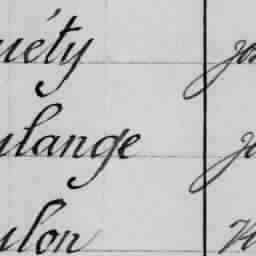 uéty Jo
ulange Jo
ulon